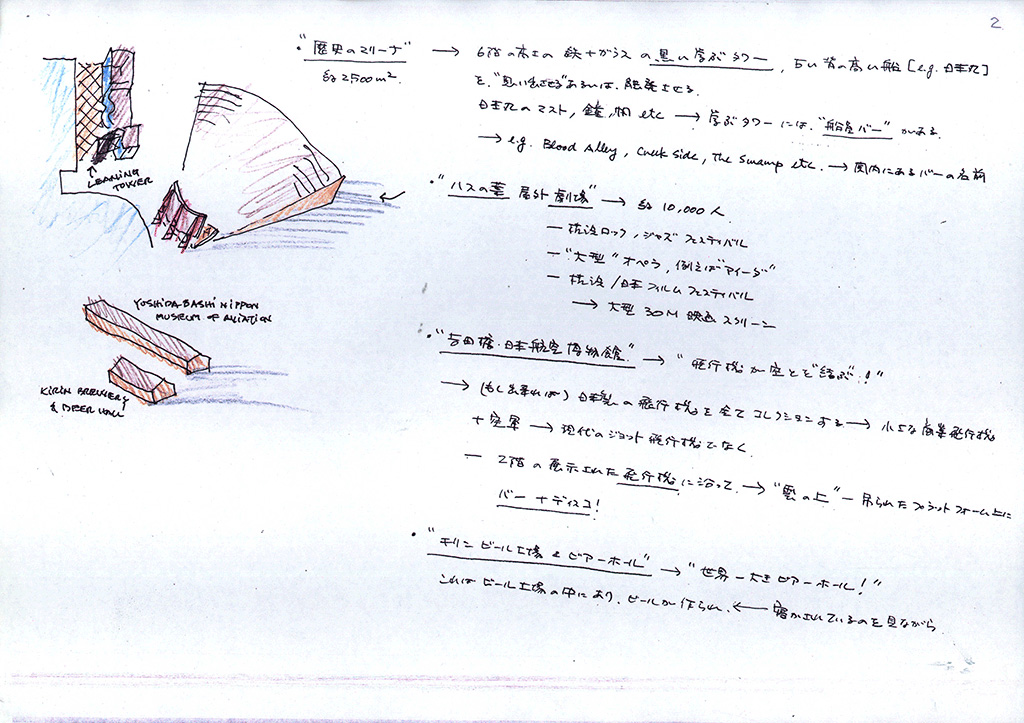 2
・"歴史のマリーナ" → 6階の高さの鉄+ガラスの黒い学ぶタワー, 古い背の高い船 [e.g. 日本丸]
約2500m².
を、"思い出させる"あるいは、触発させる.
日本丸のマスト, 鐘, 帆 etc → 学ぶタワーには、"船底バー"がある.
→ e.g. Blood Alley, Creek Side, The Swamp etc. → 関内にあるバーの名前
LEANING
TOWER
・"ハスの葉 屋外劇場" → 約 10,000人.
― 佐渡ロック, ジャズ フェスティバル
― "大型"オペラ, 例えば"アイーダ"
― 佐渡/日本フィルムフェスティバル
→ 大型 30M 映画スクリーン
YOSHIDA-BASHI NIPPON
MUSEUM OF AVIATION
KIRIN BREWERY
& BEER HALL
・"吉田橋・日本航空博物館" → "飛行機が空とを結ぶ!"
→ (もし出来れば) 日本製の飛行機を全てコレクションする → 小さな商業飛行機
+ 空軍 → 現代のジェット飛行機でなく
― 2階の展示された飛行機に沿って、→ "雲の上" ― 吊られたプラットフォーム上に
バー + ディスコ!
・"キリンビール工場 & ビアーホール" → "世界一大きビアーホール!"
これはビール工場の中にあり、ビールが作られ、← 寝かされているのを見ながら